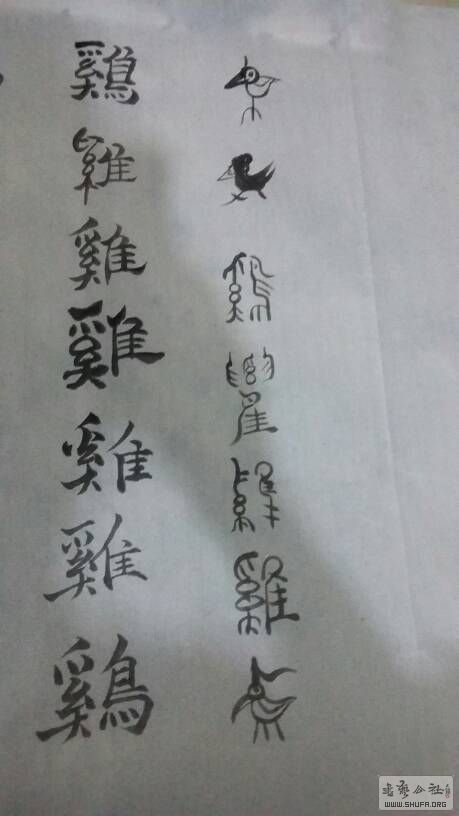 鷄雞雞雞
鷄雞雞雞雞雞鷄
书艺公社
WWW.SHUFA.ORG